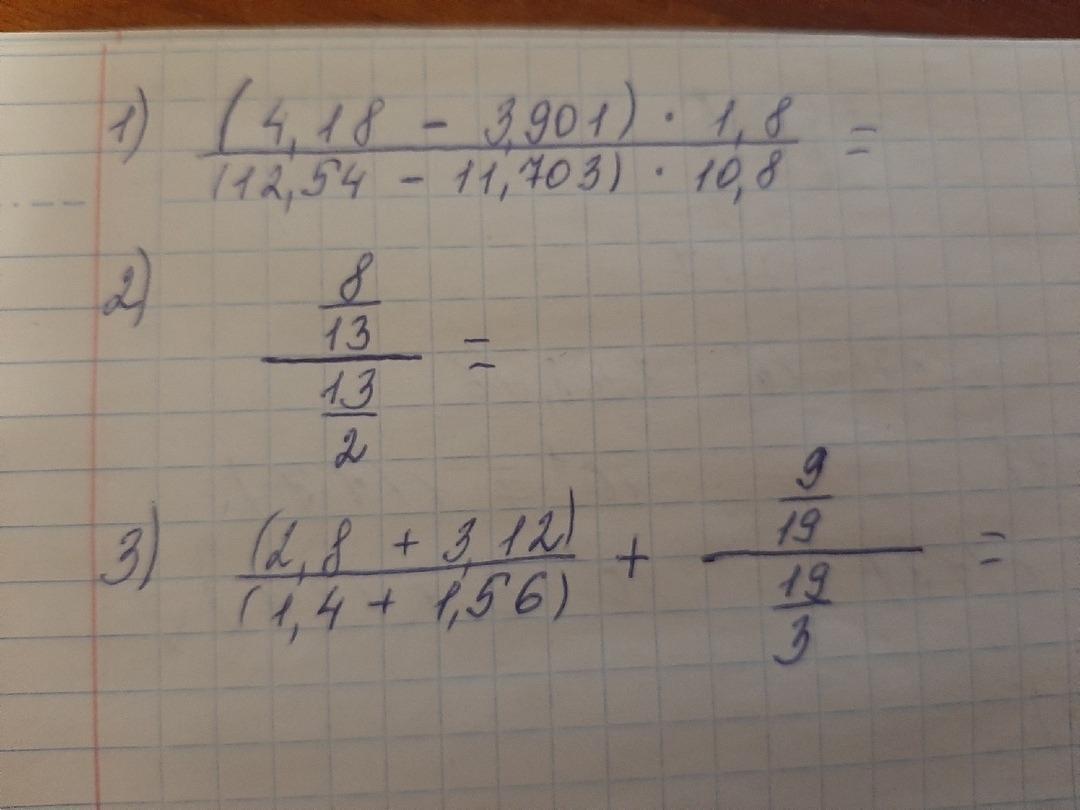 1) (4,18 - 3,901) · 1,8 =
(12,54 - 11,703) · 10,8
2) 8
13
=
13
2
9
19
3) (2,8 + 3,12) + =
(1,4 + 1,56)
19
3